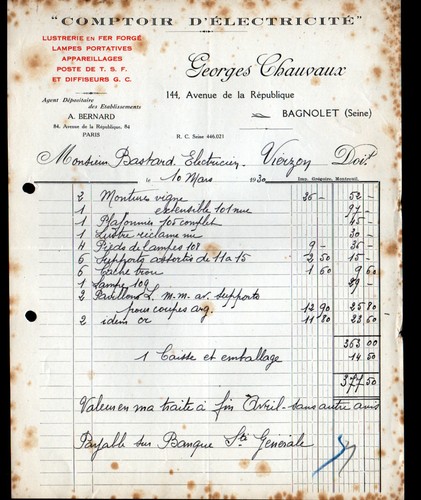 "COMPTOIR D'ÉLECTRICITÉ"
LUSTRERIE EN FER FORGÉ
LAMPES PORTATIVES
APPAREILLAGES
POSTE DE T. S. F.
ET DIFFISEURS G. C.
Georges Chauvaux
144, Avenue de la République
BAGNOLET (Seine)
Agent Dépositaire
des Etablissements
A. BERNARD
84, Avenue de la République, 84
PARIS
R. C. Seine 446.021
Monsieur Bastard. Electricien. Vierzon Doit
le 10 Mars 1930 Imp. Grégoire, Montreuil.
2 Montures vigne 26 - 52 -
1 extensible 101 nue 97 -
1 Plafonnier 105 complet 45 -
1 Lustre réclame nu 30 -
4 Pieds de lampes 108 9 - 36 -
6 Supports assortis de 11 à 15 2 50 15 -
6 Cache trou 1 60 9 60
1 Lampe 109 29 -
2 Pavillons L. m. m. av. supports
pour coupes arg. 12 90 25 80
2 idem or 11 80 23 60
363 00
1 Caisse et emballage 14 50
377 50
Valeur en ma traite à fin Avril - sans autre avis
Payable sur Banque Sté Générale